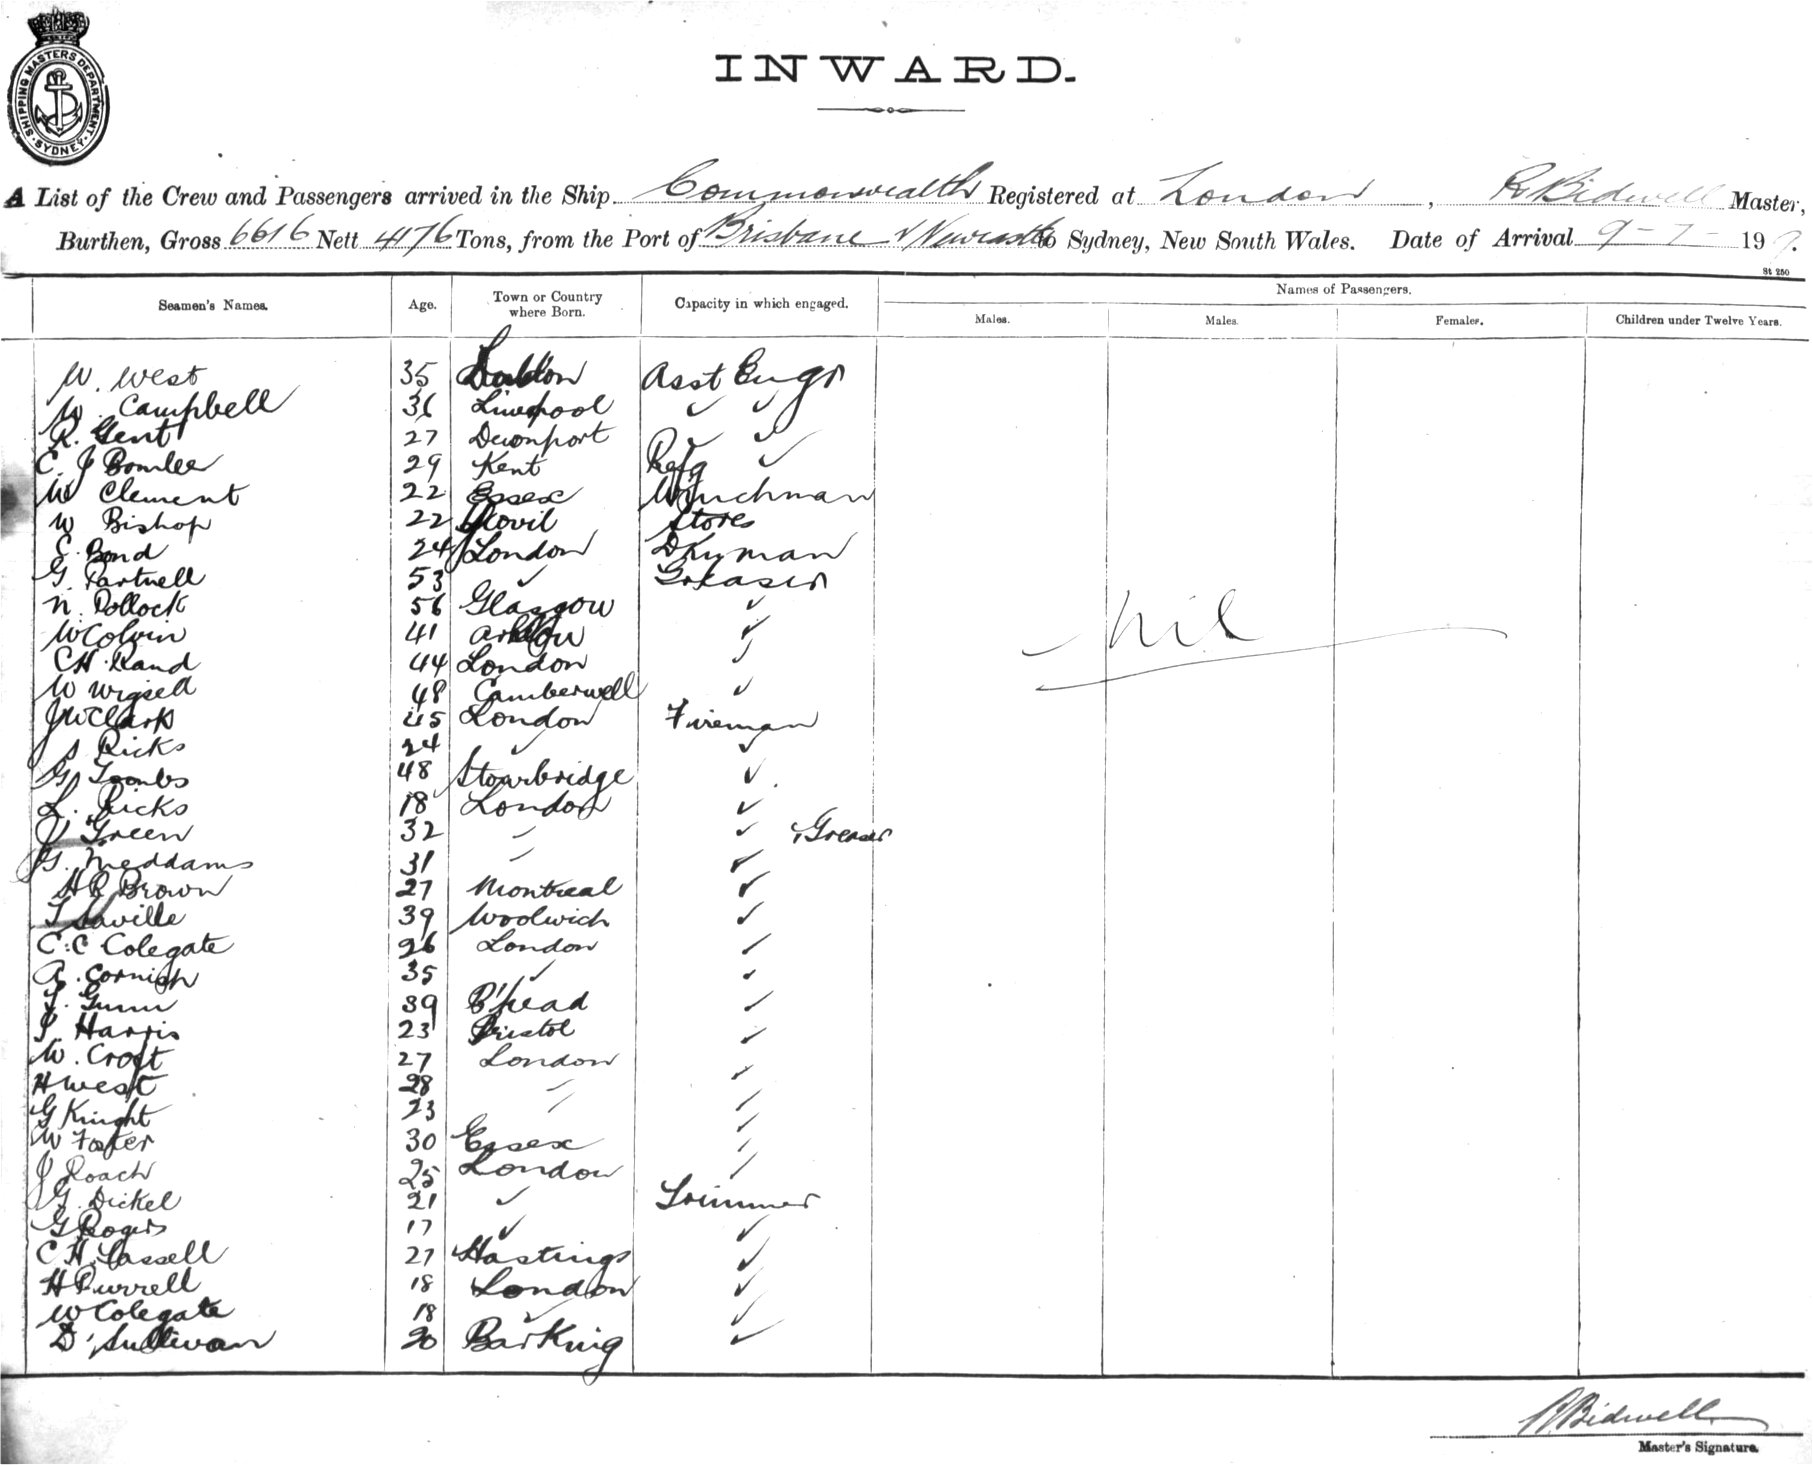 SHIPPING MASTERS DEPARTMENT. SYDNEY.
INWARD.
A List of the Crew and Passengers arrived in the Ship Commonwealth Registered at London, R Bidwell Master,
Burthen, Gross 6616 Nett 4176 Tons, from the Port of Brisbane & Newcastle to Sydney, New South Wales. Date of Arrival 9-7- 19
St 250
Seamen's Names. Age. Town or Country where Born. Capacity in which engaged. Names of Passengers.
Males. Males. Females. Children under Twelve Years.
W. West 35 London Asst Engr
W. Campbell 36 Liverpool ✓ ✓
R. Gent 27 Devonport ✓ ✓
C. J Bomlee 29 Kent Refg ✓
W Clement 22 Essex Winchman
W Bishop 22 Yeovil Stores
C. Bond 24 London Dkyman
G. Partnell 53 ✓ Greaser
N. Pollock 56 Glasgow ✓
W Colvin 41 Arklow ✓
CH Rand 44 London ✓
W Wigsell 48 Camberwell ✓
J W Clark 45 London Fireman
Ricks 24 ✓ ✓
G Toombs 48 Stourbridge ✓
L. Ricks 18 London ✓
J Green 32 " ✓ & Greaser
G. Meddams 31 " ✓
H R Brown 27 Montreal ✓
T Saville 39 Woolwich ✓
C. C Colegate 26 London ✓
A. Cornish 35 ✓ ✓
T. Gunn 39 B'head ✓
S. Harris 23 Bristol ✓
W. Croft 27 London ✓
H West 28 " ✓
G Knight 23 " ✓
W Foster 30 Essex ✓
J Roach 25 London ✓
G. Dickel 21 ✓ Trimmer
G Rogers 17 ✓ ✓
C H. Cassell 27 Hastings ✓
H Purrell 18 London ✓
W Colegate 18 ✓ ✓
D. Sullivan 20 Barking ✓
Nil
R Bidwell
Master's Signature.